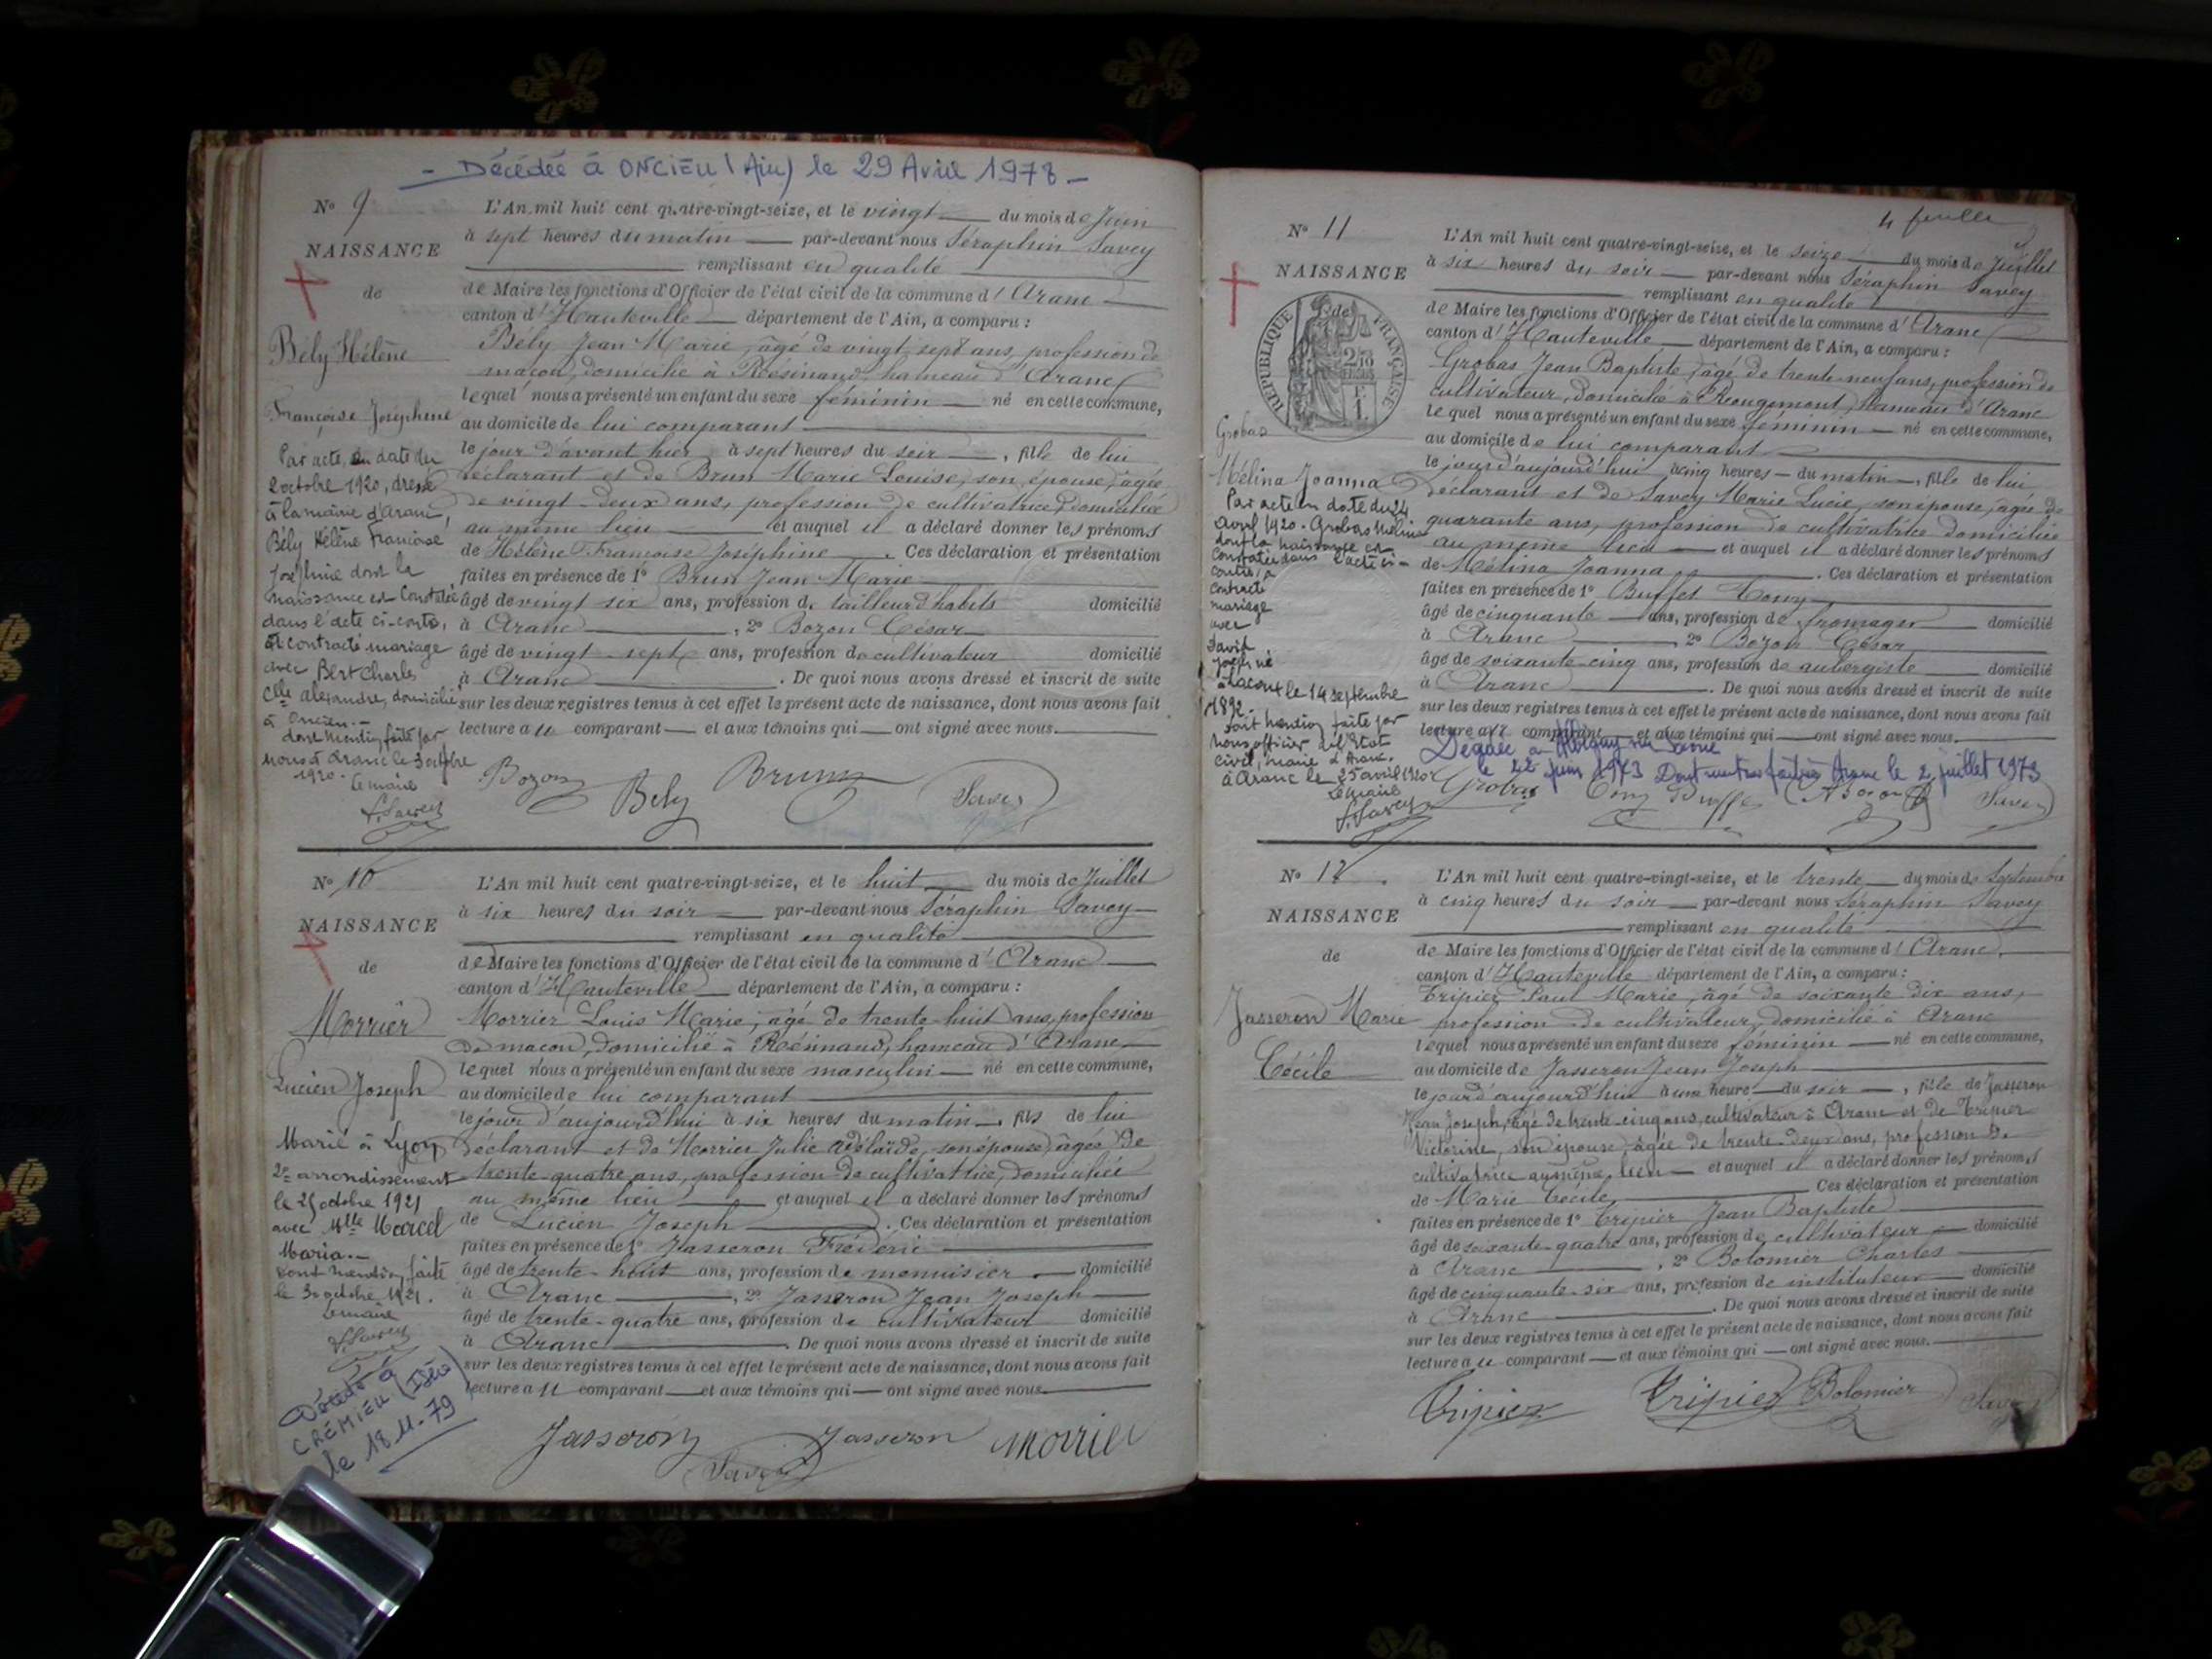 - Décédée à ONCIEU (Ain) le 29 Avril 1978 -
N° 9
NAISSANCE
de
Bély Hélène
Françoise Joséphine
Par acte, en date du
2 octobre 1920, dressé
à la mairie d'Aranc,
Bély Hélène Francoise
Joséphine dont la
naissance est Constatée
dans l'acte ci-contre,
a contracté mariage
avec Bert Charles
Cle alexandre, domicilié
à Oncieu.-
dont mention faite par
nous à Aranc le 3 octobre
1920.
Le maire
S. Savey
L'An mil huit cent quatre-vingt-seize, et le vingt du mois de Juin
à sept heures du matin par-devant nous Séraphin Savey
remplissant en qualité
de Maire les fonctions d'Officier de l'état civil de la commune d' Aranc
canton d' Hauteville département de l'Ain, a comparu :
Bély Jean Marie, âgé de vingt sept ans, profession de
maçon, domicilié à Résinand, hameau d'Aranc
lequel nous a présenté un enfant du sexe féminin né en cette commune,
au domicile de lui comparant
le jour d'avant hier à sept heures du soir, fille de lui
déclarant et de Brun Marie Louise, son épouse, âgée
de vingt-deux ans, profession de cultivatrice, domiciliée
au même lieu et auquel il a déclaré donner les prénoms
de Hélène Françoise Joséphine. Ces déclaration et présentation
faites en présence de 1° Brun Jean Marie
âgé de vingt six ans, profession de tailleur d'habits domicilié
à Aranc, 2° Bozon César
âgé de vingt-sept ans, profession de cultivateur domicilié
à Aranc. De quoi nous avons dressé et inscrit de suite
sur les deux registres tenus à cet effet le présent acte de naissance, dont nous avons fait
lecture au comparant et aux témoins qui ont signé avec nous.
Bozon Bély Brun Savey
N° 10
NAISSANCE
de
Morrier
Lucien Joseph
Marié à Lyon
2e arrondissement
le 25 octobre 1921
avec Mlle Marcel
Maria.-
dont mention faite
le 30 octobre 1921.
Le maire
S. Savey
Décédé à
CRÉMIEU (Isère)
le 18.11.79
L'An mil huit cent quatre-vingt-seize, et le huit du mois de Juillet
à six heures du soir par-devant nous Séraphin Savey
remplissant en qualité
de Maire les fonctions d'Officier de l'état civil de la commune d' Aranc
canton d' Hauteville département de l'Ain, a comparu :
Morrier Louis Marie, âgé de trente-huit ans, profession
de maçon, domicilié à Résinand, hameau d'Aranc
lequel nous a présenté un enfant du sexe masculin né en cette commune,
au domicile de lui comparant
le jour d'aujourd'hui à six heures du matin, fils de lui
déclarant et de Morrier Julie Adélaïde, son épouse, âgée de
trente-quatre ans, profession de cultivatrice, domiciliée
au même lieu et auquel il a déclaré donner les prénoms
de Lucien Joseph. Ces déclaration et présentation
faites en présence de 1° Jasseron Frédéric
âgé de trente-huit ans, profession de menuisier domicilié
à Aranc, 2° Jasseron Jean Joseph
âgé de trente-quatre ans, profession de cultivateur domicilié
à Aranc. De quoi nous avons dressé et inscrit de suite
sur les deux registres tenus à cet effet le présent acte de naissance, dont nous avons fait
lecture au comparant et aux témoins qui ont signé avec nous.
Jasseron Jasseron Morrier
Savey
4 feuille
N° 11
NAISSANCE
de
RÉPUBLIQUE FRANÇAISE
Grobas
Mélina Joanna
Par acte en date du 24
avril 1920. Grobas Mélina
dont la naissance est
constatée dans l'acte ci-
contre, a
contracté
mariage
avec
David
né
à Lacoux le 14 septembre
1892.
dont mention faite par
nous officier de l'Etat
civil, maire d'Aranc.
à Aranc le 25 avril 1920
Le maire
S. Savey
L'An mil huit cent quatre-vingt-seize, et le seize du mois de Juillet
à six heures du soir par-devant nous Séraphin Savey
remplissant en qualité
de Maire les fonctions d'Officier de l'état civil de la commune d' Aranc
canton d' Hauteville département de l'Ain, a comparu :
Grobas Jean Baptiste, âgé de trente-neuf ans, profession de
cultivateur, domicilié à Rougemont, hameau d'Aranc
lequel nous a présenté un enfant du sexe féminin né en cette commune,
au domicile de lui comparant
le jour d'aujourd'hui à cinq heures du matin, fille de lui
déclarant et de Savey Marie Lucie, son épouse, âgée de
quarante ans, profession de cultivatrice domiciliée
au même lieu et auquel il a déclaré donner les prénoms
de Mélina Joanna. Ces déclaration et présentation
faites en présence de 1° Buffet Tony
âgé de cinquante ans, profession de fromager domicilié
à Aranc 2° Bozon César
âgé de soixante-cinq ans, profession de aubergiste domicilié
à Aranc. De quoi nous avons dressé et inscrit de suite
sur les deux registres tenus à cet effet le présent acte de naissance, dont nous avons fait
lecture au comparant et aux témoins qui ont signé avec nous.
Décédée à Albigny sur Saône
le 22 juin 1973 Dont mention faite à Aranc le 2 juillet 1973
Grobas Tony Buffet Bozon Savey
N° 12
NAISSANCE
de
Jasseron Marie
Cécile
L'An mil huit cent quatre-vingt-seize, et le trente du mois de Septembre
à cinq heures du soir par-devant nous Séraphin Savey
remplissant en qualité
de Maire les fonctions d'Officier de l'état civil de la commune d' Aranc.
canton d' Hauteville département de l'Ain, a comparu :
Tripier Paul Marie, âgé de soixante dix ans,
profession de cultivateur, domicilié à Aranc
lequel nous a présenté un enfant du sexe féminin né en cette commune,
au domicile de Jasseron Jean Joseph
le jour d'aujourd'hui à une heure du soir, fille de Jasseron
Jean Joseph, âgé de trente-cinq ans, cultivateur à Aranc et de Tripier
Victorine, son épouse, âgée de trente-deux ans, profession de
cultivatrice au même lieu et auquel il a déclaré donner les prénoms
de Marie Cécile. Ces déclaration et présentation
faites en présence de 1° Tripier Jean Baptiste
âgé de soixante-quatre ans, profession de cultivateur domicilié
à Aranc, 2° Bolomier Charles
âgé de cinquante-six ans, profession de instituteur domicilié
à Aranc. De quoi nous avons dressé et inscrit de suite
sur les deux registres tenus à cet effet le présent acte de naissance, dont nous avons fait
lecture au comparant et aux témoins qui ont signé avec nous.
Tripier Tripier Bolomier Savey